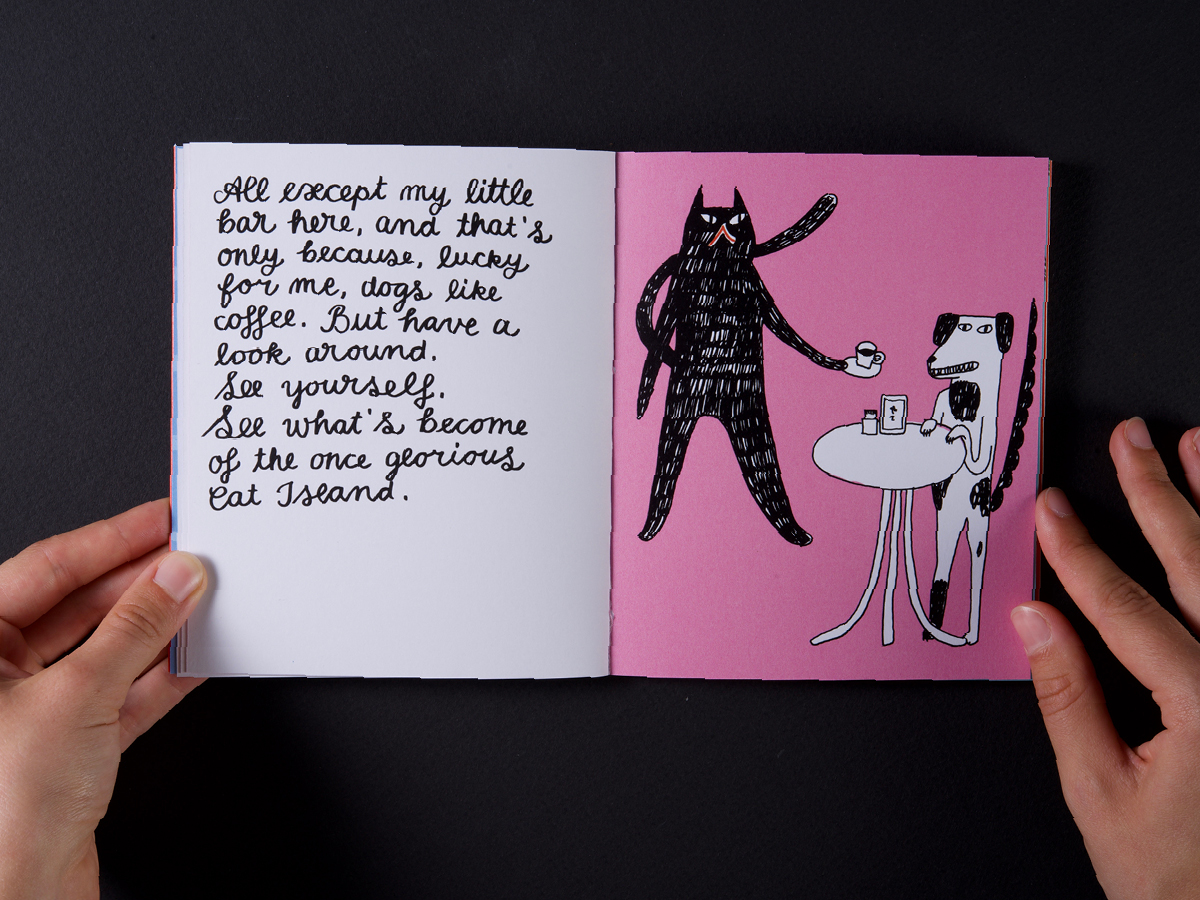 All except my little
bar here, and that's
only because, lucky
for me, dogs like
coffee. But have a
look around.
See yourself.
See what's become
of the once glorious
Cat Island.